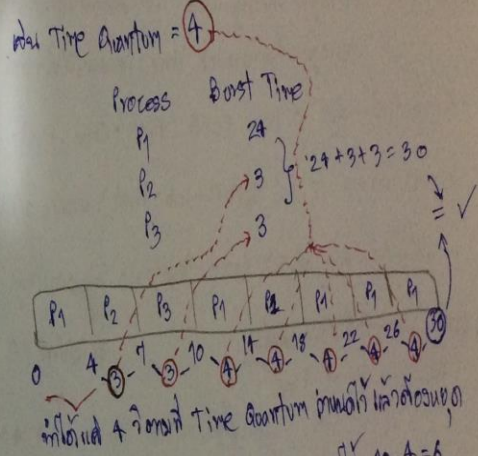 เช่น Time Quantum = 4
Process Burst Time
P1 24
P2 3
P3 3
24+3+3 = 30
= ✓
P1 P2 P3 P1 P2 P1 P1 P1
0 4 7 10 14 18 22 26 30
3 3 4 4 4 4 4
ทำได้แค่ 4 วิตามที่ Time Quantum กำหนดไว้ แล้วต้องหยุด